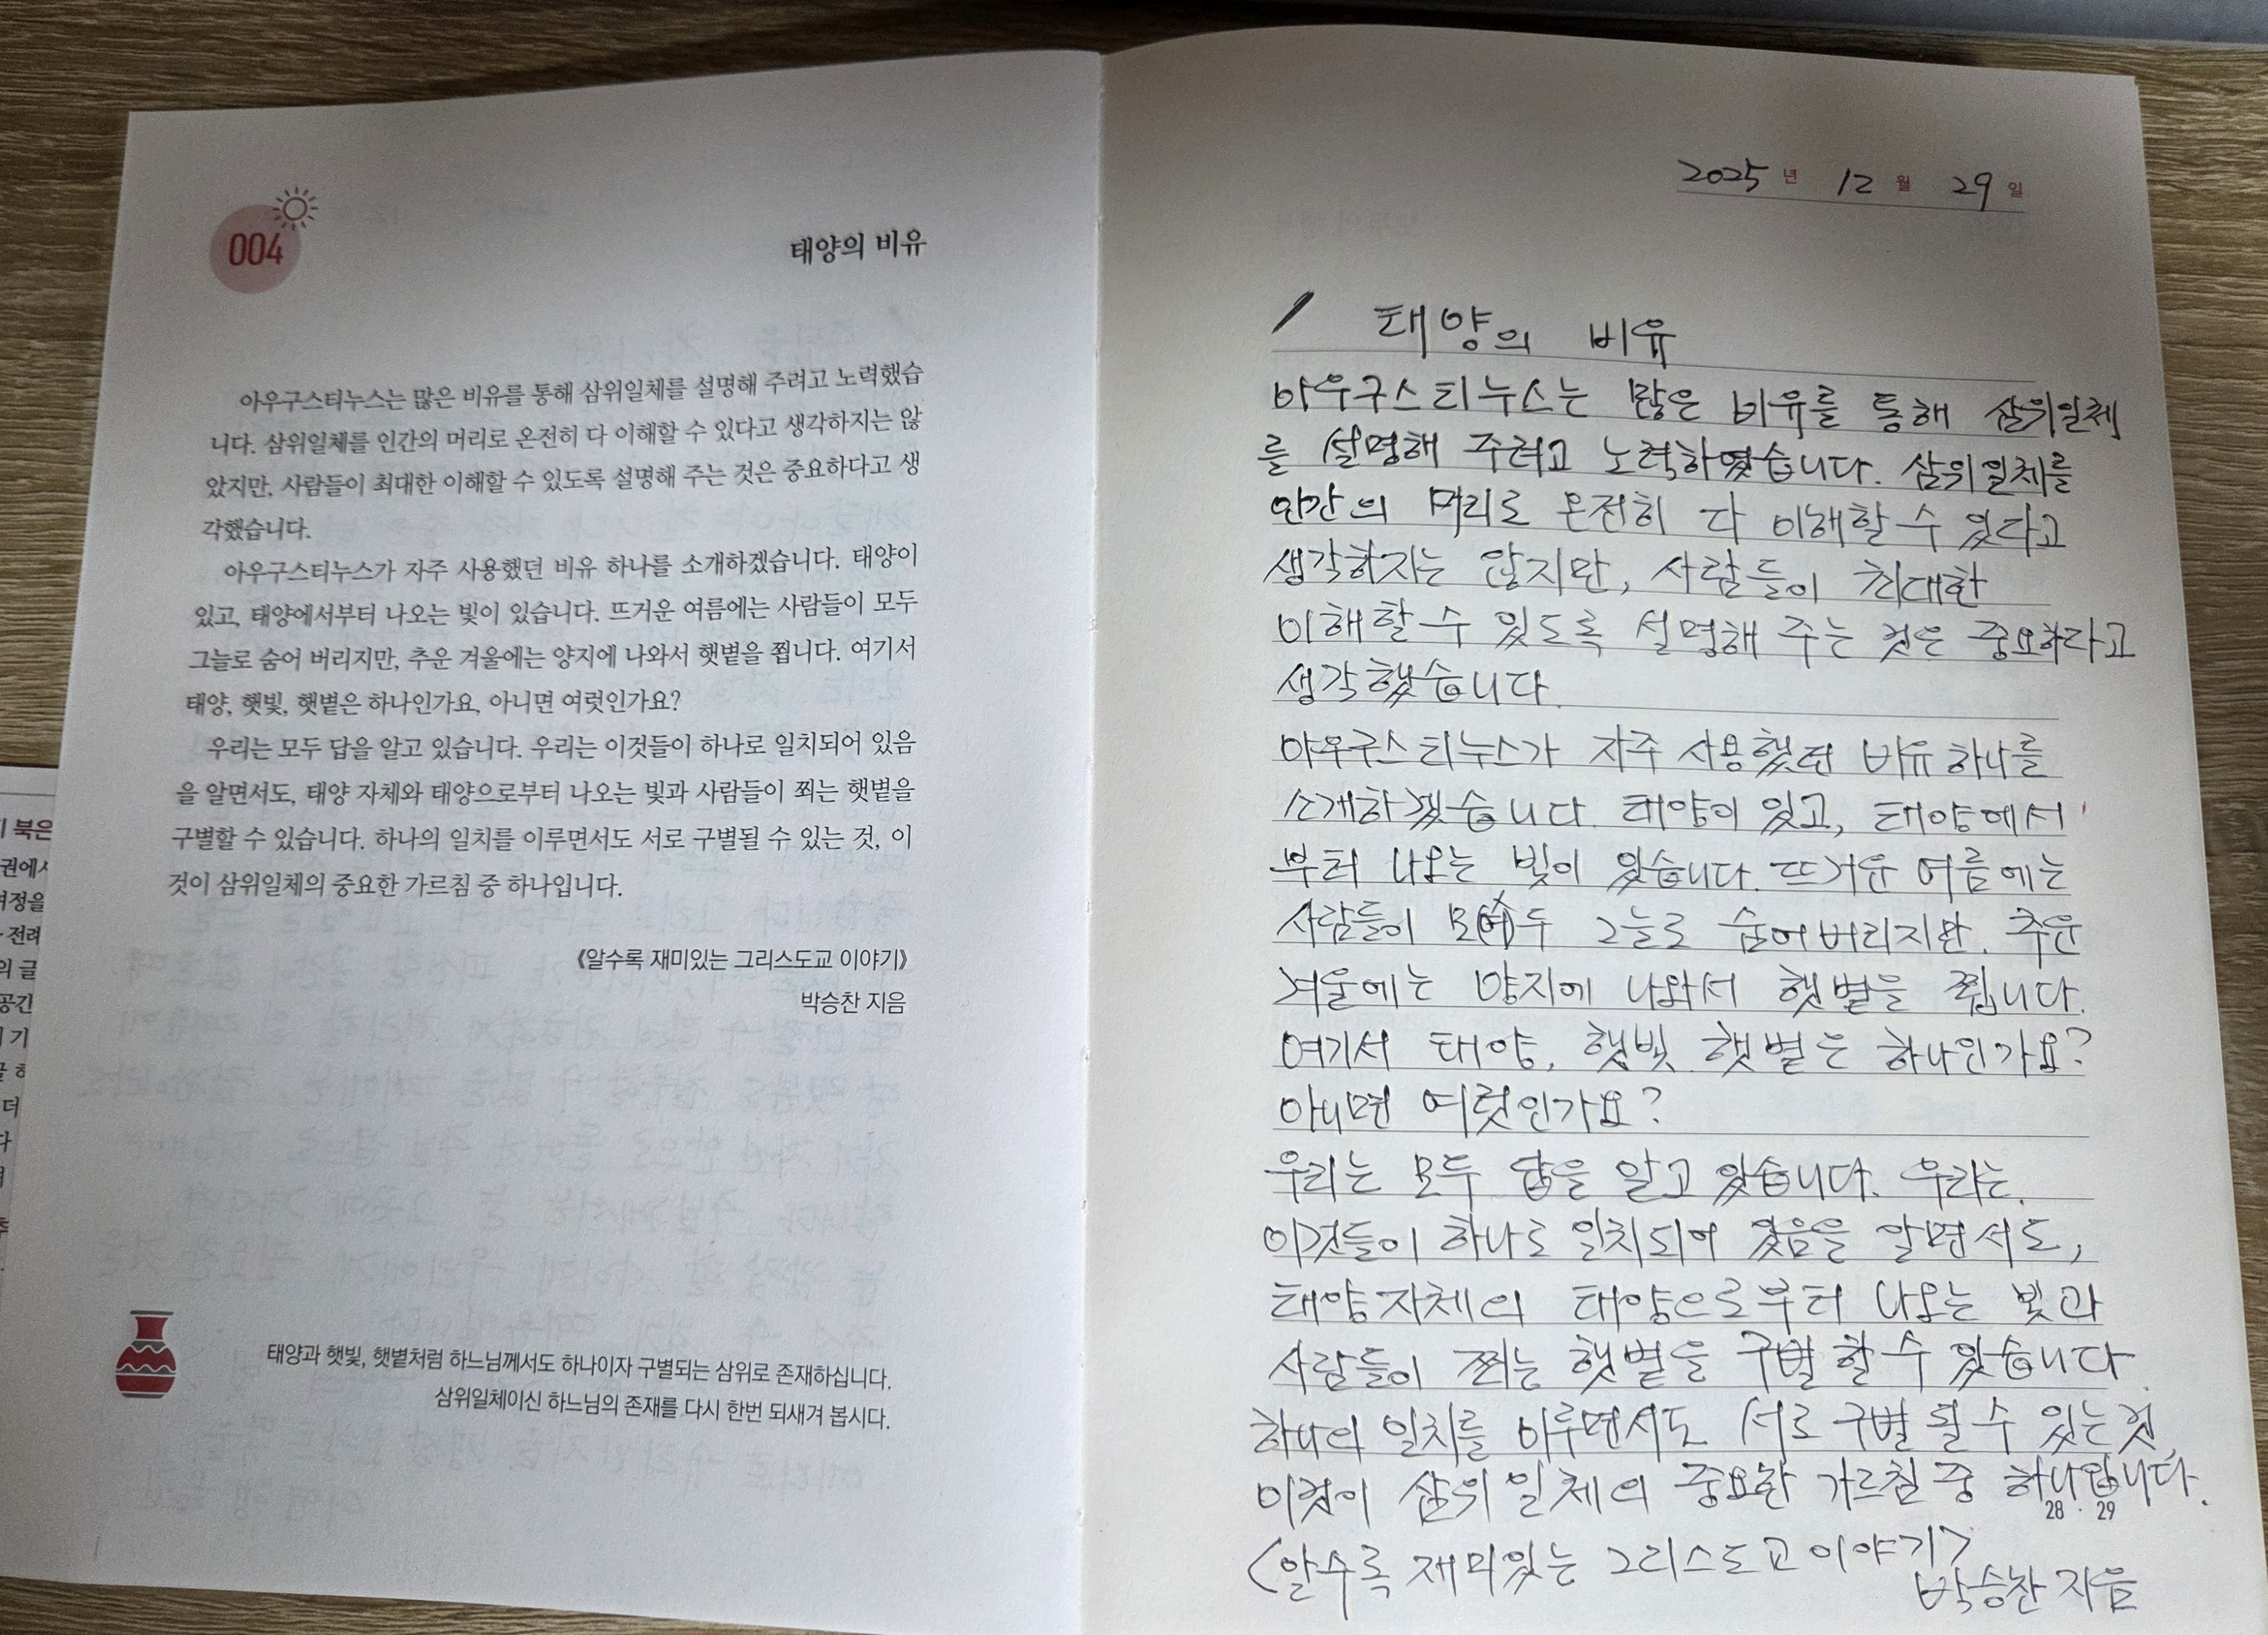 004
태양의 비유
아우구스티누스는 많은 비유를 통해 삼위일체를 설명해 주려고 노력했습
니다. 삼위일체를 인간의 머리로 온전히 다 이해할 수 있다고 생각하지는 않
았지만, 사람들이 최대한 이해할 수 있도록 설명해 주는 것은 중요하다고 생
각했습니다.
아우구스티누스가 자주 사용했던 비유 하나를 소개하겠습니다. 태양이
있고, 태양에서부터 나오는 빛이 있습니다. 뜨거운 여름에는 사람들이 모두
그늘로 숨어 버리지만, 추운 겨울에는 양지에 나와서 햇볕을 쬡니다. 여기서
태양, 햇빛, 햇볕은 하나인가요, 아니면 여럿인가요?
우리는 모두 답을 알고 있습니다. 우리는 이것들이 하나로 일치되어 있음
을 알면서도, 태양 자체와 태양으로부터 나오는 빛과 사람들이 쬐는 햇볕을
구별할 수 있습니다. 하나의 일치를 이루면서도 서로 구별될 수 있는 것, 이
것이 삼위일체의 중요한 가르침 중 하나입니다.
《알수록 재미있는 그리스도교 이야기》
박승찬 지음
태양과 햇빛, 햇볕처럼 하느님께서도 하나이자 구별되는 삼위로 존재하십니다.
삼위일체이신 하느님의 존재를 다시 한번 되새겨 봅시다.
2025년 12월 29일
태양의 비유
아우구스티누스는 많은 비유를 통해 삼위일체
를 설명해 주려고 노력하였습니다. 삼위일체를
인간의 머리로 온전히 다 이해할 수 있다고
생각하지는 않지만, 사람들이 최대한
이해할 수 있도록 설명해 주는 것은 중요하다고
생각했습니다.
아우구스티누스가 자주 사용했던 비유 하나를
소개하겠습니다. 태양이 있고, 태양에서
부터 나오는 빛이 있습니다. 뜨거운 여름에는
사람들이 모두 그늘로 숨어버리지만. 추운
겨울에는 양지에 나와서 햇볕을 쬡니다.
여기서 태양, 햇빛, 햇볕은 하나인가요?
아니면 여럿인가요?
우리는 모두 답을 알고 있습니다. 우리는.
이것들이 하나로 일치되어 있음을 알면서도,
태양자체의 태양으로부터 나오는 빛과
사람들이 쬐는 햇볕을 구별할 수 있습니다.
하나의 일치를 이루면서도 서로 구별 될 수 있는 것,
이것이 삼위일체의 중요한 가르침 중 하나입니다.
28 · 29
<알수록 재미있는 그리스도교 이야기>
박승찬 지음